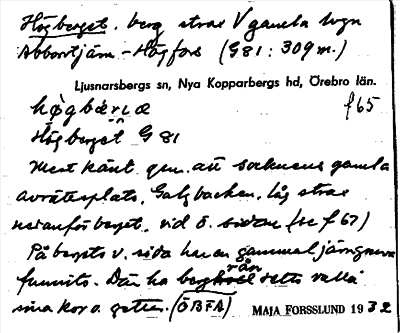 Högberget, berg strax V gamla vägn
Abborrtjärn - Högfors (G 81: 309 m.)
Ljusnarsbergs sn, Nya Kopparbergs hd, Örebro län.
hø̀gbærɩæ f 65
Högberget G 81
Mest känt gm. att socknens gamla
avrättsplats, Galgbacken, låg strax
nedanför berget, vid ö. sidan (se f 67)
På bergets v. sida har en gammal järngruva
funnits. Där ha bergrån setts valla
sina kor o. getter. (ÖBFA)
MAJA FORSSLUND 1932